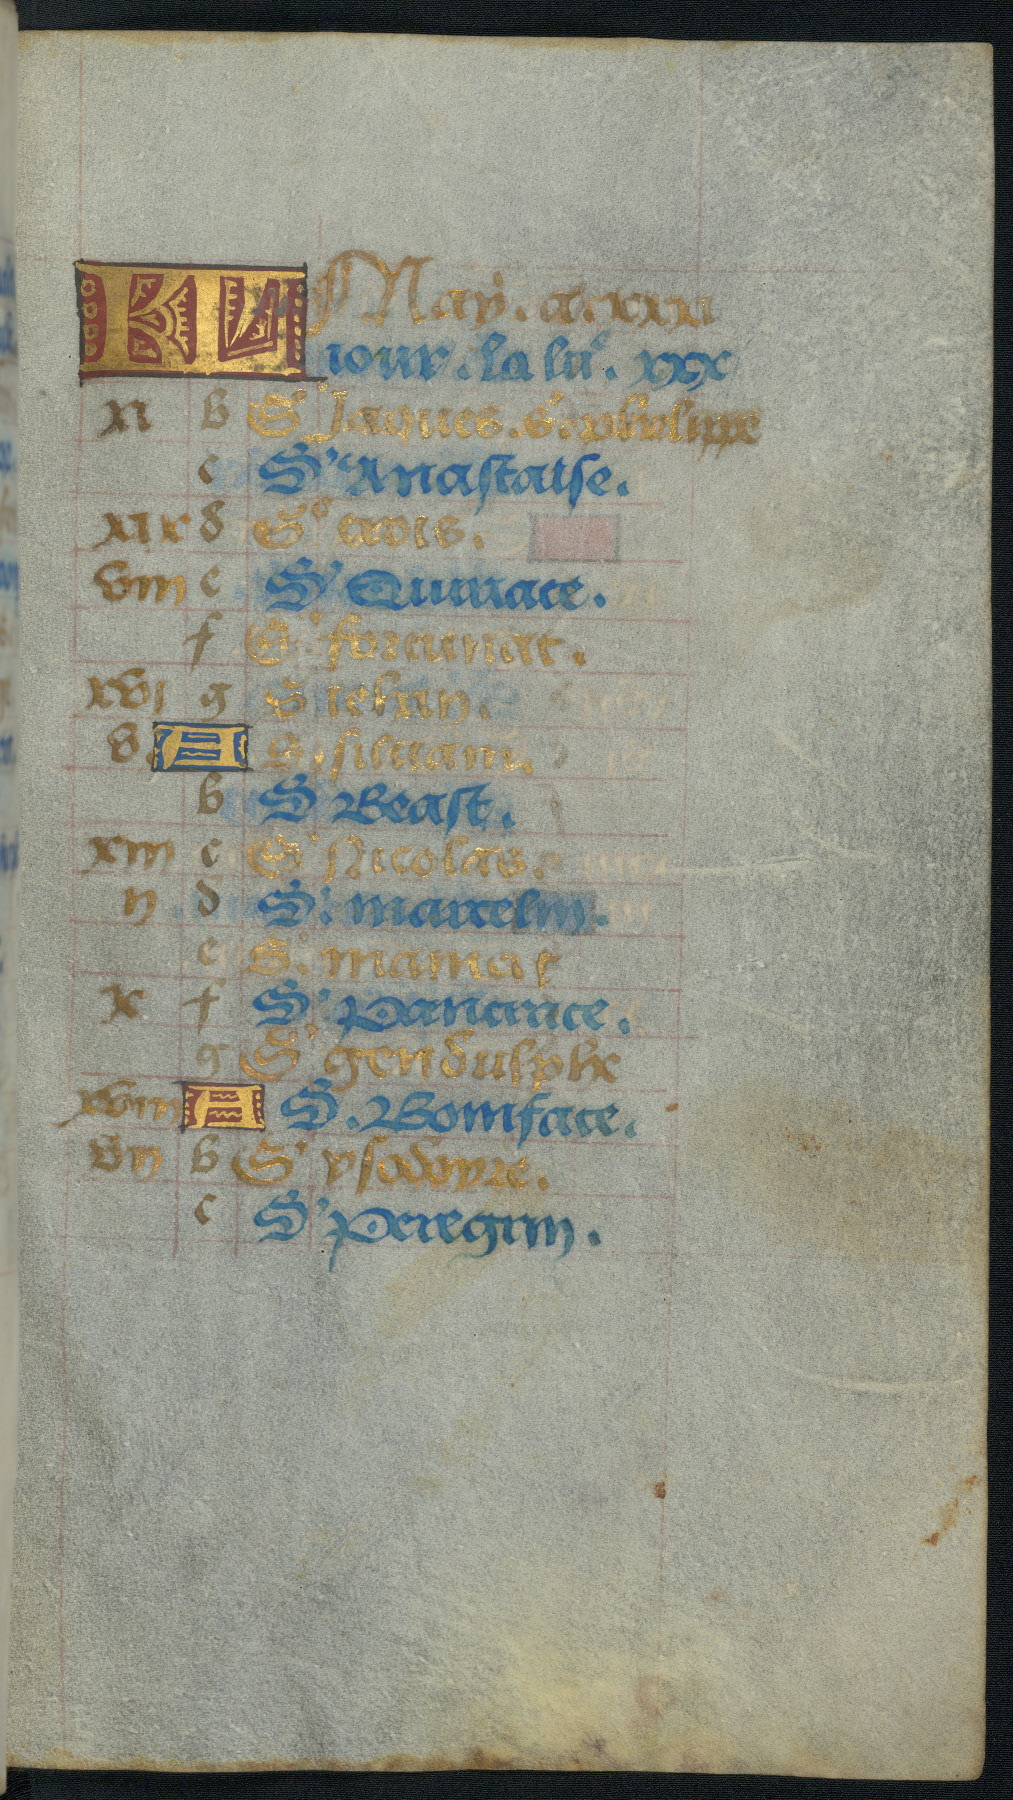 KL May. a. xxxi
iour. la lu̅e. xxx
xi b S' Jaques. s. phelippe
c S' Anastaise.
xix d Se croix.
viii e S' Quiriace.
f S' fortunat.
xvi g S iehan.
v. A S. siluain.
b S Beast.
xiii c S' Nicolas.
ii d S'. marcelin.
e S. mamaς
x f S' panance.
g S' gendulphe
xviii A S. Boniface.
vii b S' ysodoyre.
c S' peregrin.